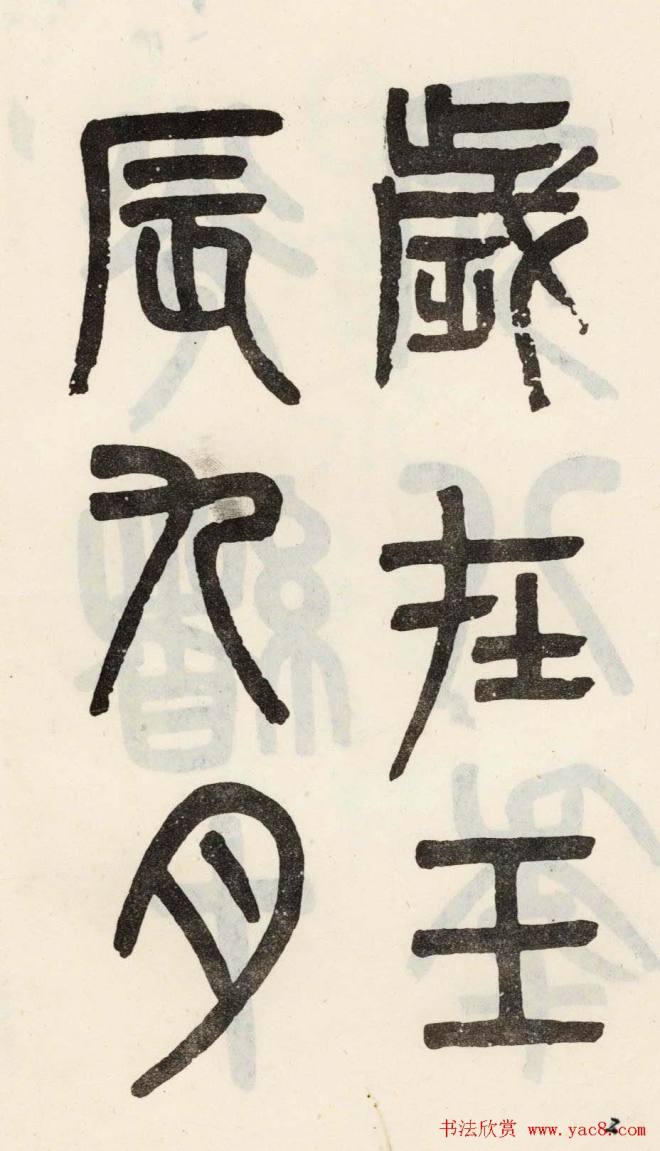 歲在壬
辰九月
书法欣赏 www.yac8.com
2